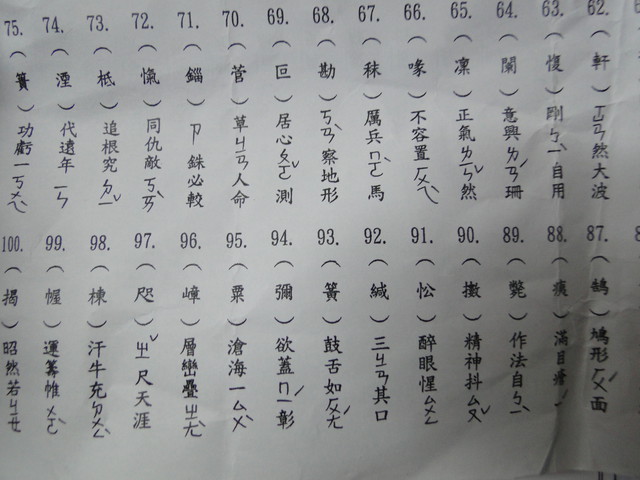 62.（軒）ㄒㄩㄢ然大波
63.（愎）剛ㄅㄧˋ自用
64.（闌）意興ㄌㄢˊ珊
65.（凜）正氣ㄌㄧㄣˇ然
66.（喙）不容置ㄏㄨㄟˋ
67.（秣）厲兵ㄇㄛˋ馬
68.（勘）ㄎㄢˋ察地形
69.（叵）居心ㄆㄛˇ測
70.（菅）草ㄐㄧㄢ人命
71.（錙）ㄗ銖必較
72.（愾）同仇敵ㄎㄞˋ
73.（柢）追根究ㄉㄧˇ
74.（湮）代遠年ㄧㄣ
75.（簣）功虧一ㄎㄨㄟˋ
87.（鵠）鳩形ㄏㄨˊ面
88.（痍）滿目瘡ㄧˊ
89.（斃）作法自ㄅㄧˋ
90.（擻）精神抖ㄙㄡˇ
91.（忪）醉眼惺ㄙㄨㄥ
92.（緘）三ㄐㄧㄢ其口
93.（簧）鼓舌如ㄏㄨㄤˊ
94.（彌）欲蓋ㄇㄧˊ彰
95.（粟）滄海一ㄙㄨˋ
96.（嶂）層巒疊ㄓㄤˋ
97.（咫）ㄓˇ尺天涯
98.（棟）汗牛充ㄉㄨㄥˋ
99.（幄）運籌帷ㄨㄛˋ
100.（揭）昭然若ㄐㄧㄝ